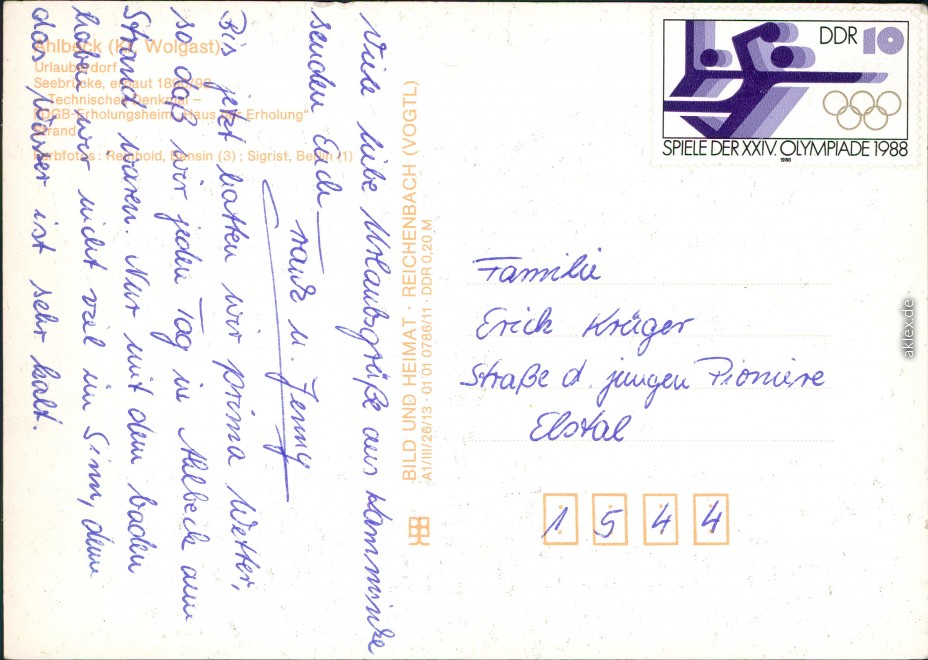 Ahlbeck (Kr. Wolgast)
Urlauberdorf
Seebrücke, erbaut
– Technisches Denkmal –
FDGB-Erholungsheim „Haus der Erholung“
Strand
Farbfotos: Reinhold, Bansin (3); Sigrist, Berlin (1)
Viele liebe Urlaubsgrüße aus Kamminke
senden Euch
u. Jenny
Bis jetzt hatten wir prima Wetter,
so daß wir jeden Tag in Ahlbeck am
Strand waren. Nur mit dem baden
haben wir nicht viel im Sinn, denn
das Wasser ist sehr kalt.
BILD UND HEIMAT · REICHENBACH (VOGTL)
A1/III/26/13 · 01 01 0786/11 · DDR 0,20 M
DDR 10
SPIELE DER XXIV. OLYMPIADE 1988
1988
Familie
Erick Krüger
Straße d. jungen Pioniere
Elstal
1 5 4 4
aklex.de